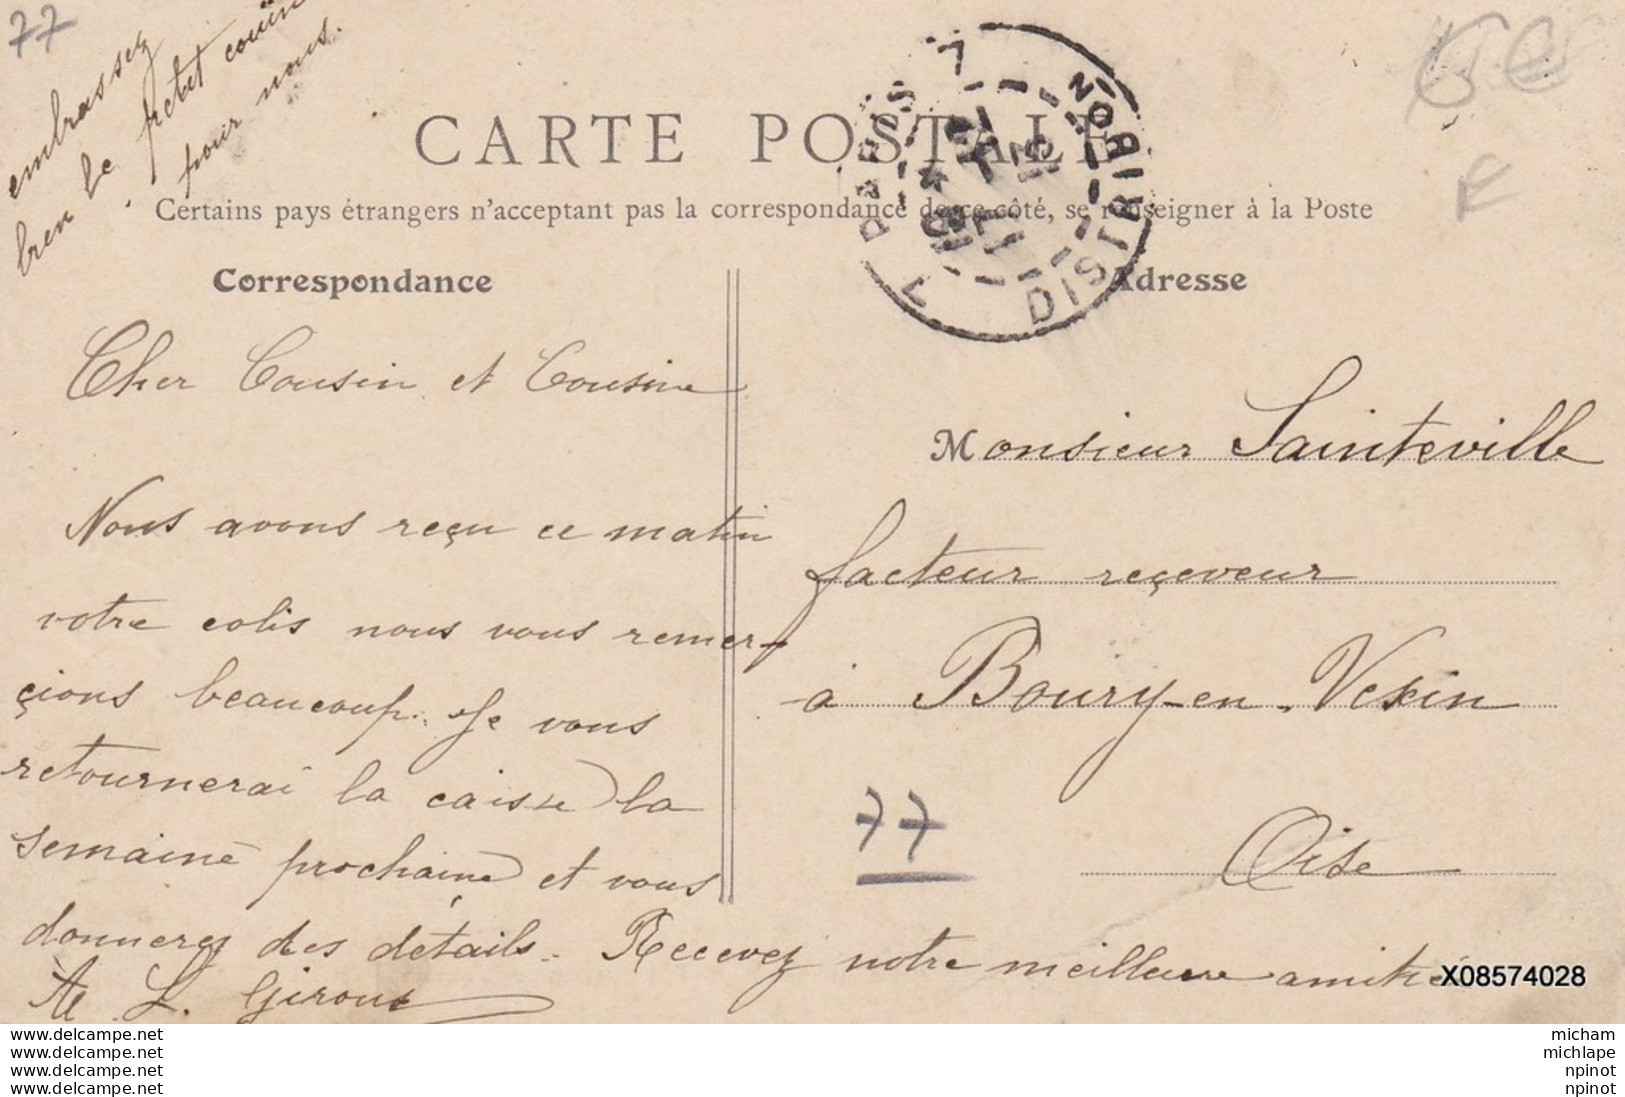 77
embrassez
bien le petit cousin
pour nous.
CARTE POSTALE
Certains pays étrangers n'acceptent pas la correspondance de ce côté, se renseigner à la Poste
Correspondance
Adresse
PARIS
DISTRIBON
Cher Cousin et Cousine
Nous avons reçu ce matin
votre colis nous vous remer-
çions beaucoup. Je vous
retournerai la caisse la
semaine prochaine et vous
donnerez des détails. Recevez notre meilleure amitié
L. Giroux
Monsieur Sainteville
facteur reçeveur
à Boury-en-Vexin
77
Oise
X08574028
delcampe.net
delcampe.net
delcampe.net
delcampe.net
micham
michlape
npinot
npinot